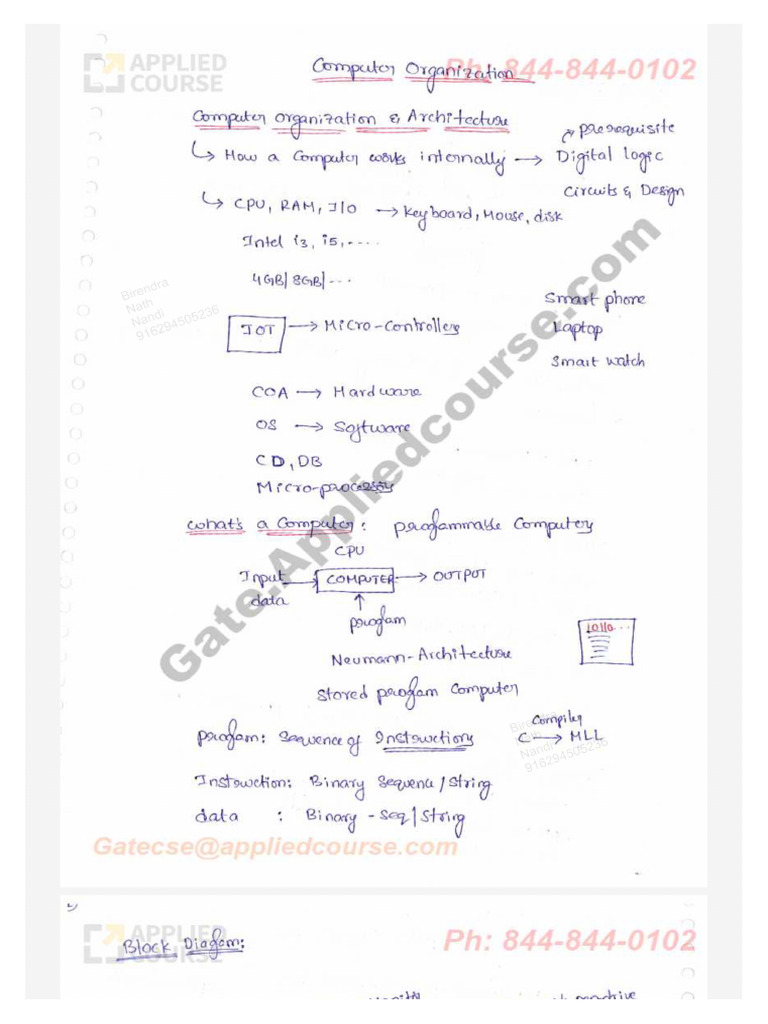 APPLIED
COURSE
Ph: 844-844-0102
Computer Organization
Computer Organization & Architecture
prerequisite
↳ How a Computer works internally → Digital logic
Circuits & Design
↳ CPU, RAM, I/O → Keyboard, Mouse, disk
Intel i3, i5,....
4GB/8GB/...
Birendra
Nath
Nandi
916294505236
Smart phone
IOT → Micro-Controllers
Laptop
Smart watch
COA → Hardware
OS → Software
CD, DB
Micro-processor
Gate.Appliedcourse.com
What's a Computer: programmable Computers
CPU
Input data → COMPUTER → OUTPUT
↑
program
10110...
Neumann-Architecture
Stored program Computer
Birendra
Nath
Nandi
916294505236
Compiler
program: Sequence of Instructions C → MLL
Instruction: Binary Sequence/String
data : Binary-Seq/String
Gatecse@appliedcourse.com
APPLIED
COURSE
Ph: 844-844-0102
Block Diagram:
machine